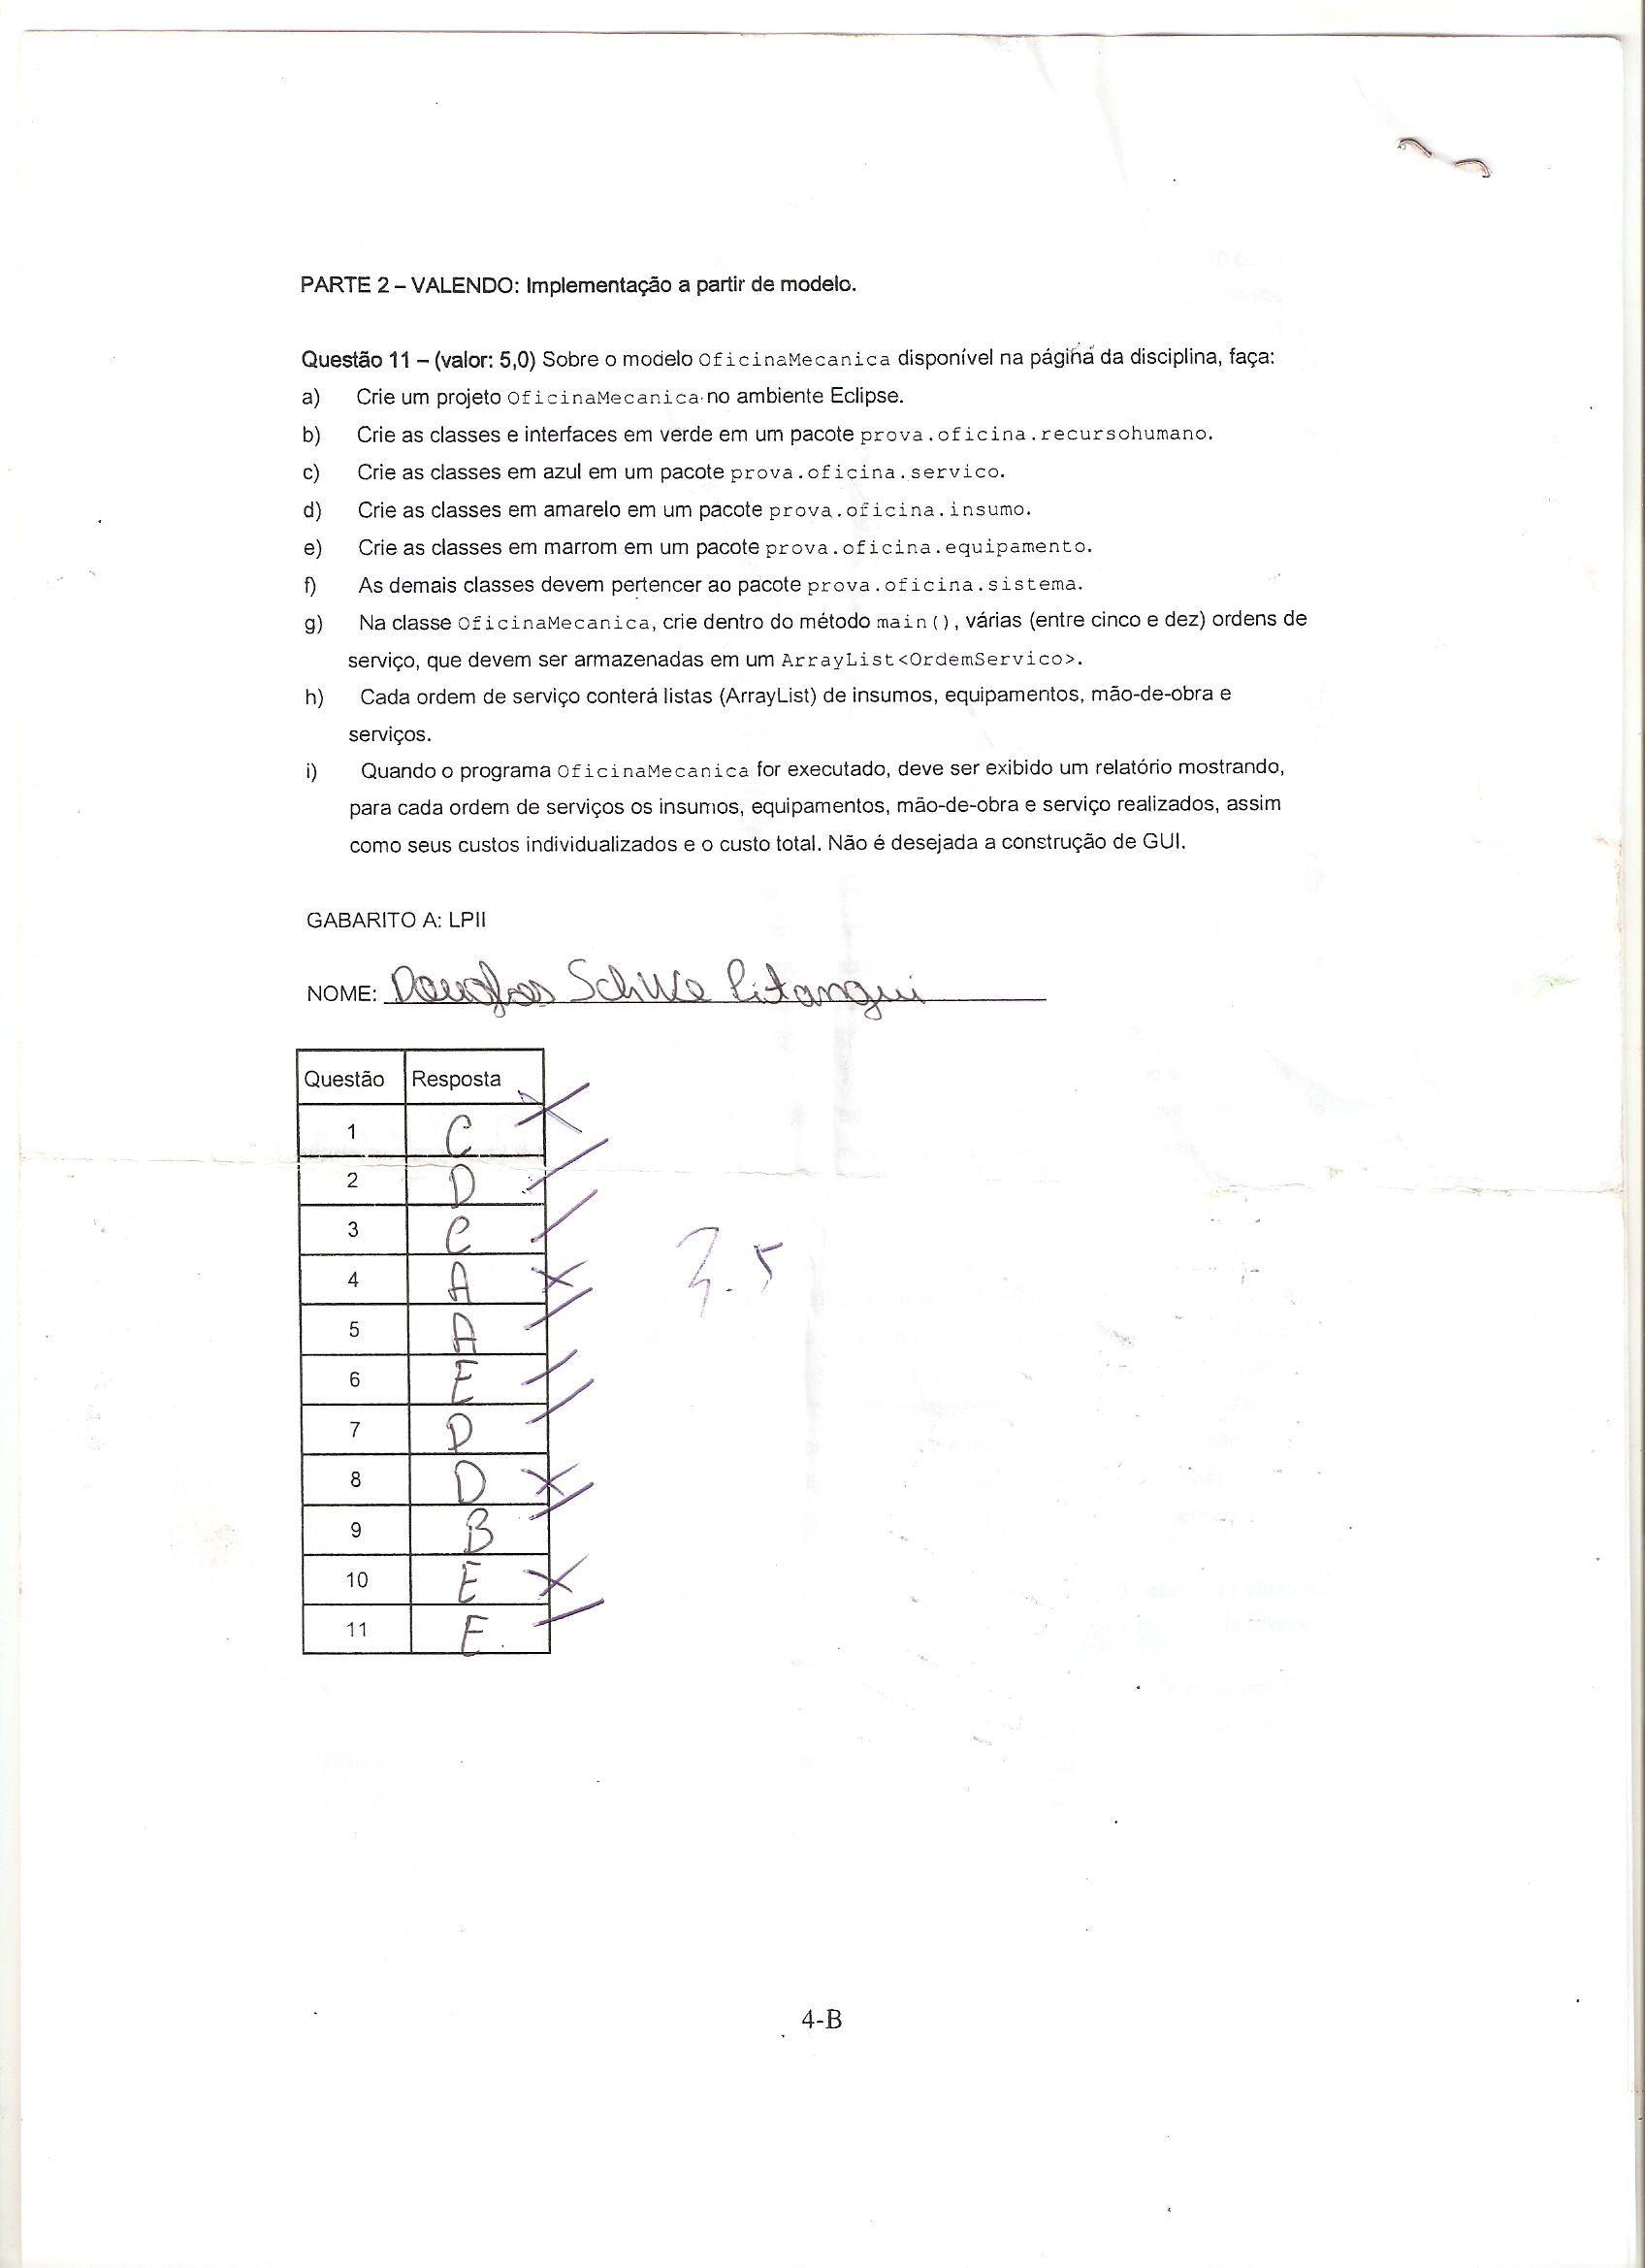 PARTE 2 – VALENDO: Implementação a partir de modelo.
Questão 11 – (valor: 5,0) Sobre o modelo OficinaMecanica disponível na página da disciplina, faça:
a) Crie um projeto OficinaMecanica no ambiente Eclipse.
b) Crie as classes e interfaces em verde em um pacote prova.oficina.recursohumano.
c) Crie as classes em azul em um pacote prova.oficina.servico.
d) Crie as classes em amarelo em um pacote prova.oficina.insumo.
e) Crie as classes em marrom em um pacote prova.oficina.equipamento.
f) As demais classes devem pertencer ao pacote prova.oficina.sistema.
g) Na classe OficinaMecanica, crie dentro do método main(), várias (entre cinco e dez) ordens de
serviço, que devem ser armazenadas em um ArrayList<OrdemServico>.
h) Cada ordem de serviço conterá listas (ArrayList) de insumos, equipamentos, mão-de-obra e
serviços.
i) Quando o programa OficinaMecanica for executado, deve ser exibido um relatório mostrando,
para cada ordem de serviços os insumos, equipamentos, mão-de-obra e serviço realizados, assim
como seus custos individualizados e o custo total. Não é desejada a construção de GUI.
GABARITO A: LPII
NOME: Douglas Pitangui
Questão Resposta
1 C
2 D
3 C
4 A
5 A
6 E
7 D
8 D
9 B
10 E
11 E
3.5
4-B